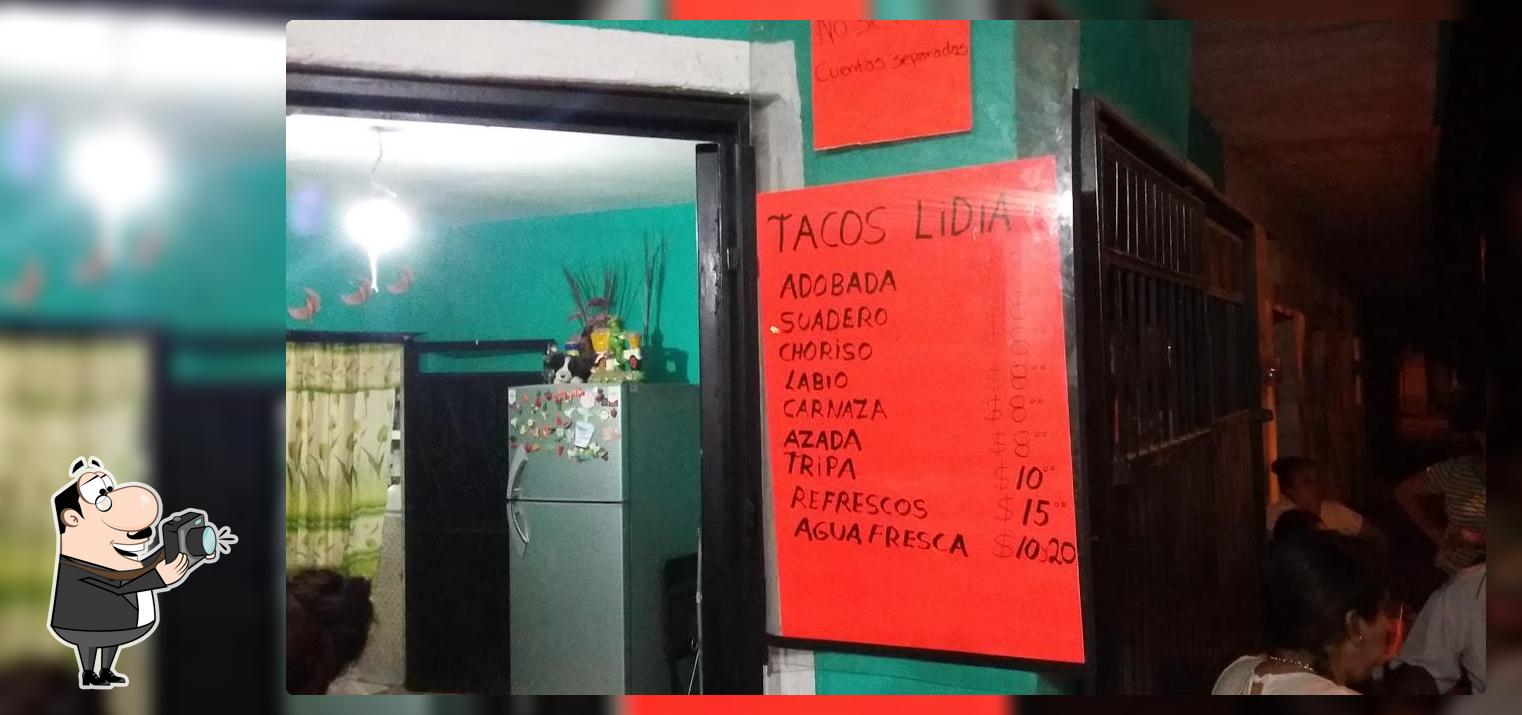 NO SE
Cuentas separadas
TACOS LiDiA
ADOBADA $8.00
SUADERO $8.00
CHORISO $8.00
LABIO $8.00
CARNAZA $8.00
AZADA $8.00
TRiPA $10.00
REFRESCOS $15.00
AGUA FRESCA $10y20